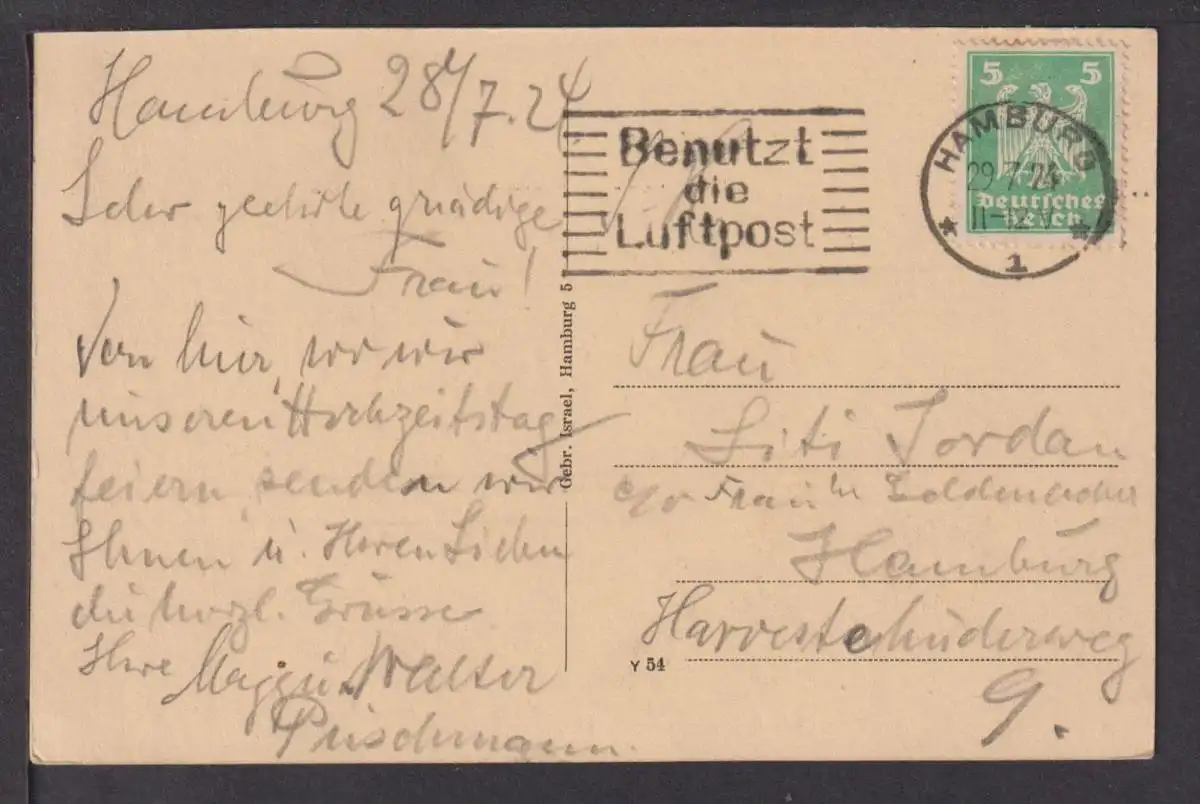 Hamburg 28/7.24
Sehr geehrte gnädige
Frau!
Von hier, wo wir
unseren Hochzeitstag
feiern, senden wir
Ihnen u. Ihren Lieben
die herzl. Grüsse
Ihre Maggie u. Walter
Puschmann.
Gebr. Israel, Hamburg 5
Benutzt
die
Luftpost
5 5
Deutsches
Reich
HAMBURG
29.7.24
11-12 V
* 1 *
Frau
Liti Jordan
c/o Frau
Hamburg
Harvestehuderweg
9.
Y 54